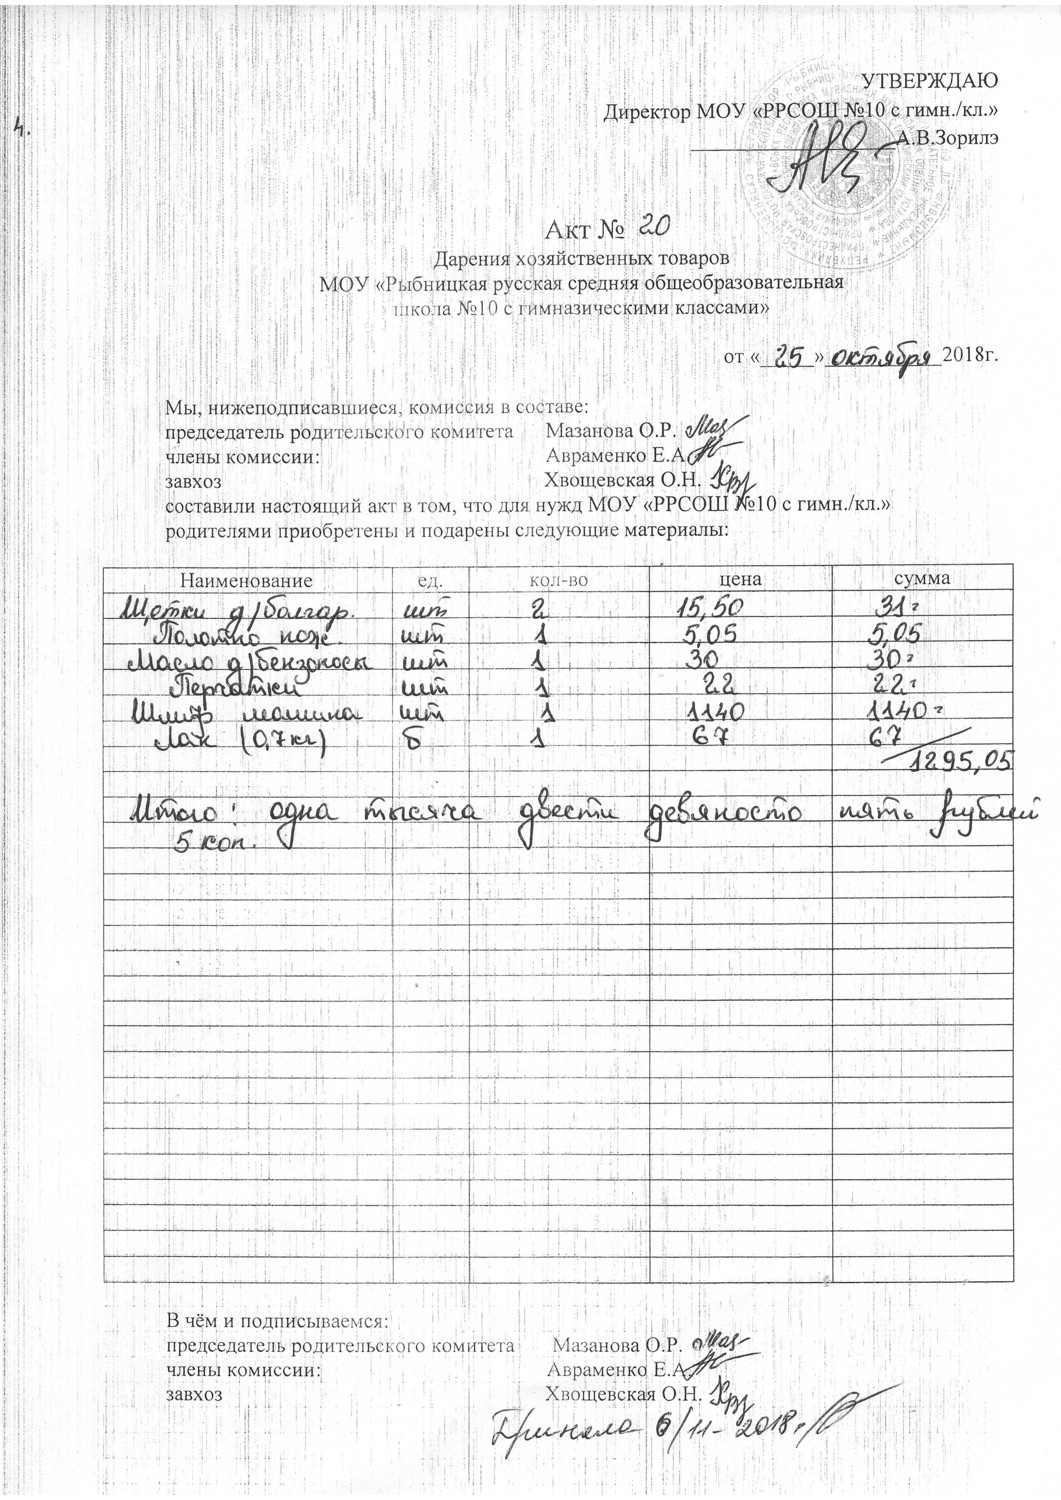 УТВЕРЖДАЮ
Директор МОУ «РРСОШ №10 с гимн./кл.»
А.В.Зорилэ
4.
Акт № 20
Дарения хозяйственных товаров
МОУ «Рыбницкая русская средняя общеобразовательная
школа №10 с гимназическими классами»
от «25» октября 2018г.
Мы, нижеподписавшиеся, комиссия в составе:
председатель родительского комитета Мазанова О.Р.
члены комиссии: Авраменко Е.А.
завхоз Хвощевская О.Н.
составили настоящий акт в том, что для нужд МОУ «РРСОШ №10 с гимн./кл.»
родителями приобретены и подарены следующие материалы:
Наименование ед. кол-во цена сумма
Щетки д/болгар. шт 2 15,50 31-
Полотно нож. шт 1 5,05 5,05
Масло д/бензокосы шт 1 30 30-
Перчатки шт 1 22 22-
Шлиф машина шт 1 1140 1140-
Лак (0,7кг) б 1 67 67
1295,05
Итого: одна тысяча двести девяносто пять рублей
5 коп.
В чём и подписываемся:
председатель родительского комитета Мазанова О.Р.
члены комиссии: Авраменко Е.А.
завхоз Хвощевская О.Н.
Приняла 6/11-2018г.